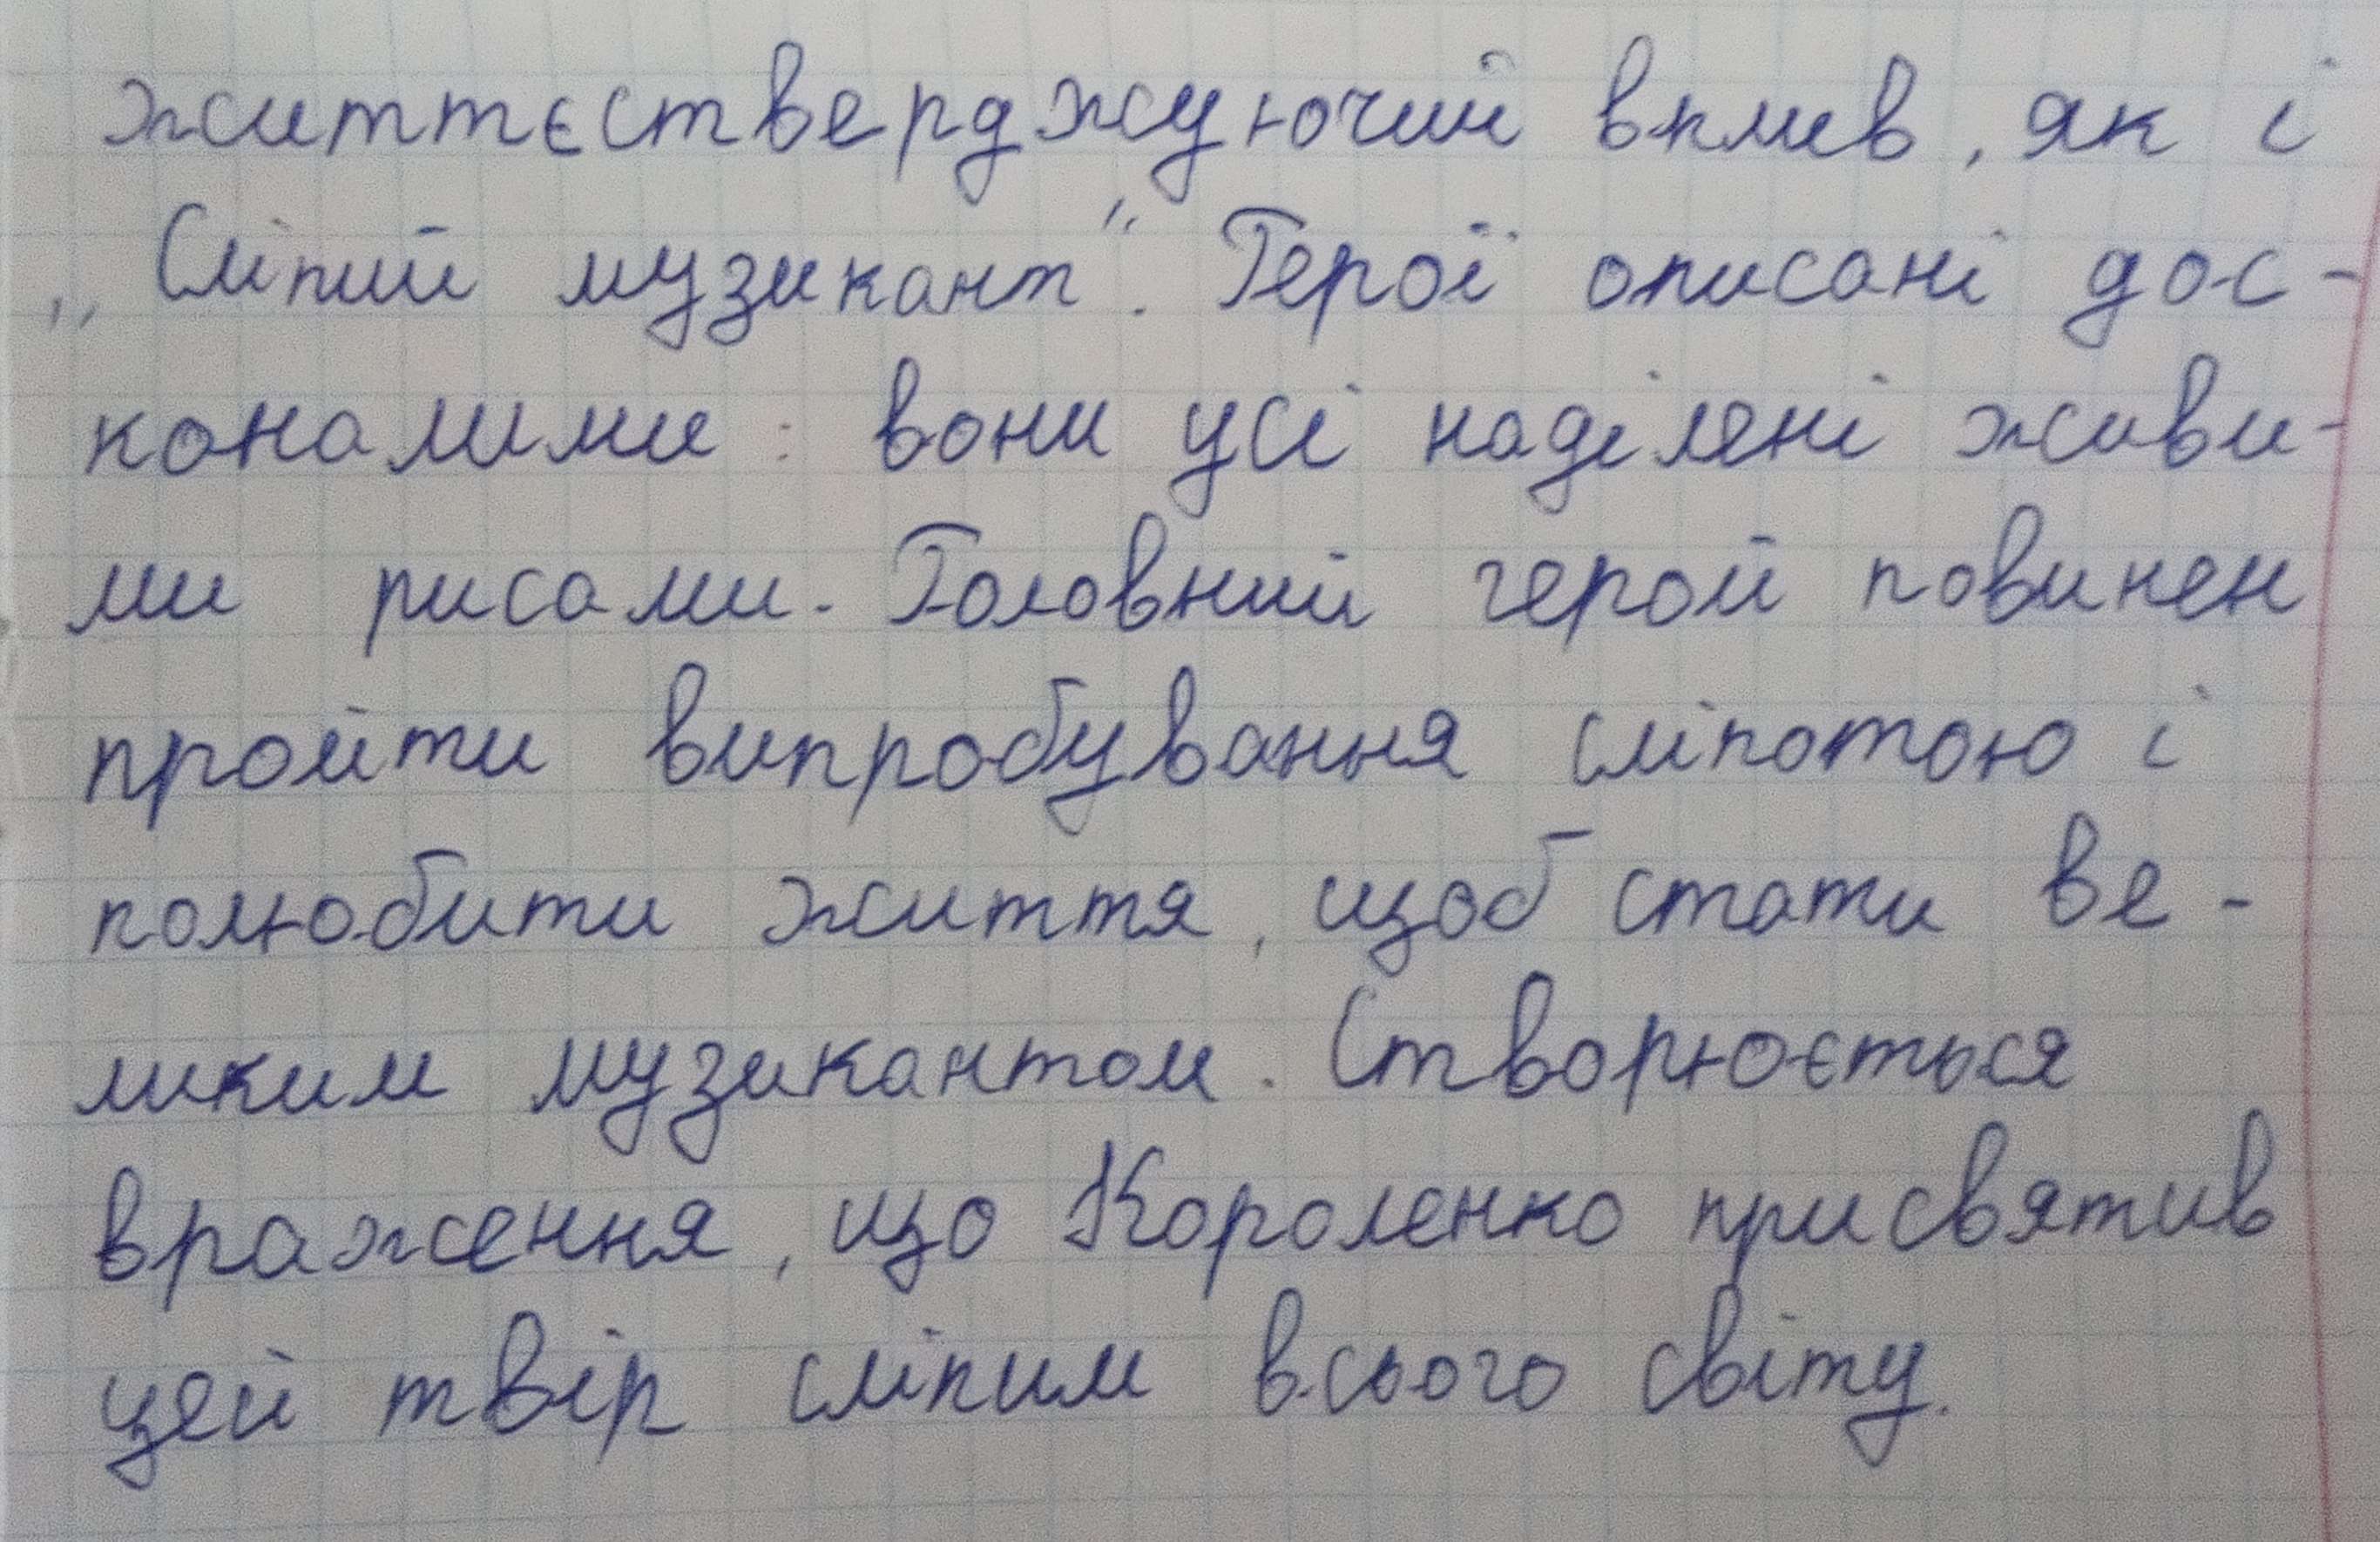 життєстверджуючий вплив, як і
„Сліпий музикант". Герої описані дос-
коналими: вони усі наділені живи-
ми рисами. Головний герой повинен
пройти випробування сліпотою і
полюбити життя, щоб стати ве-
ликим музикантом. Створюється
враження, що Короленко присвятив
цей твір сліпим всього світу.